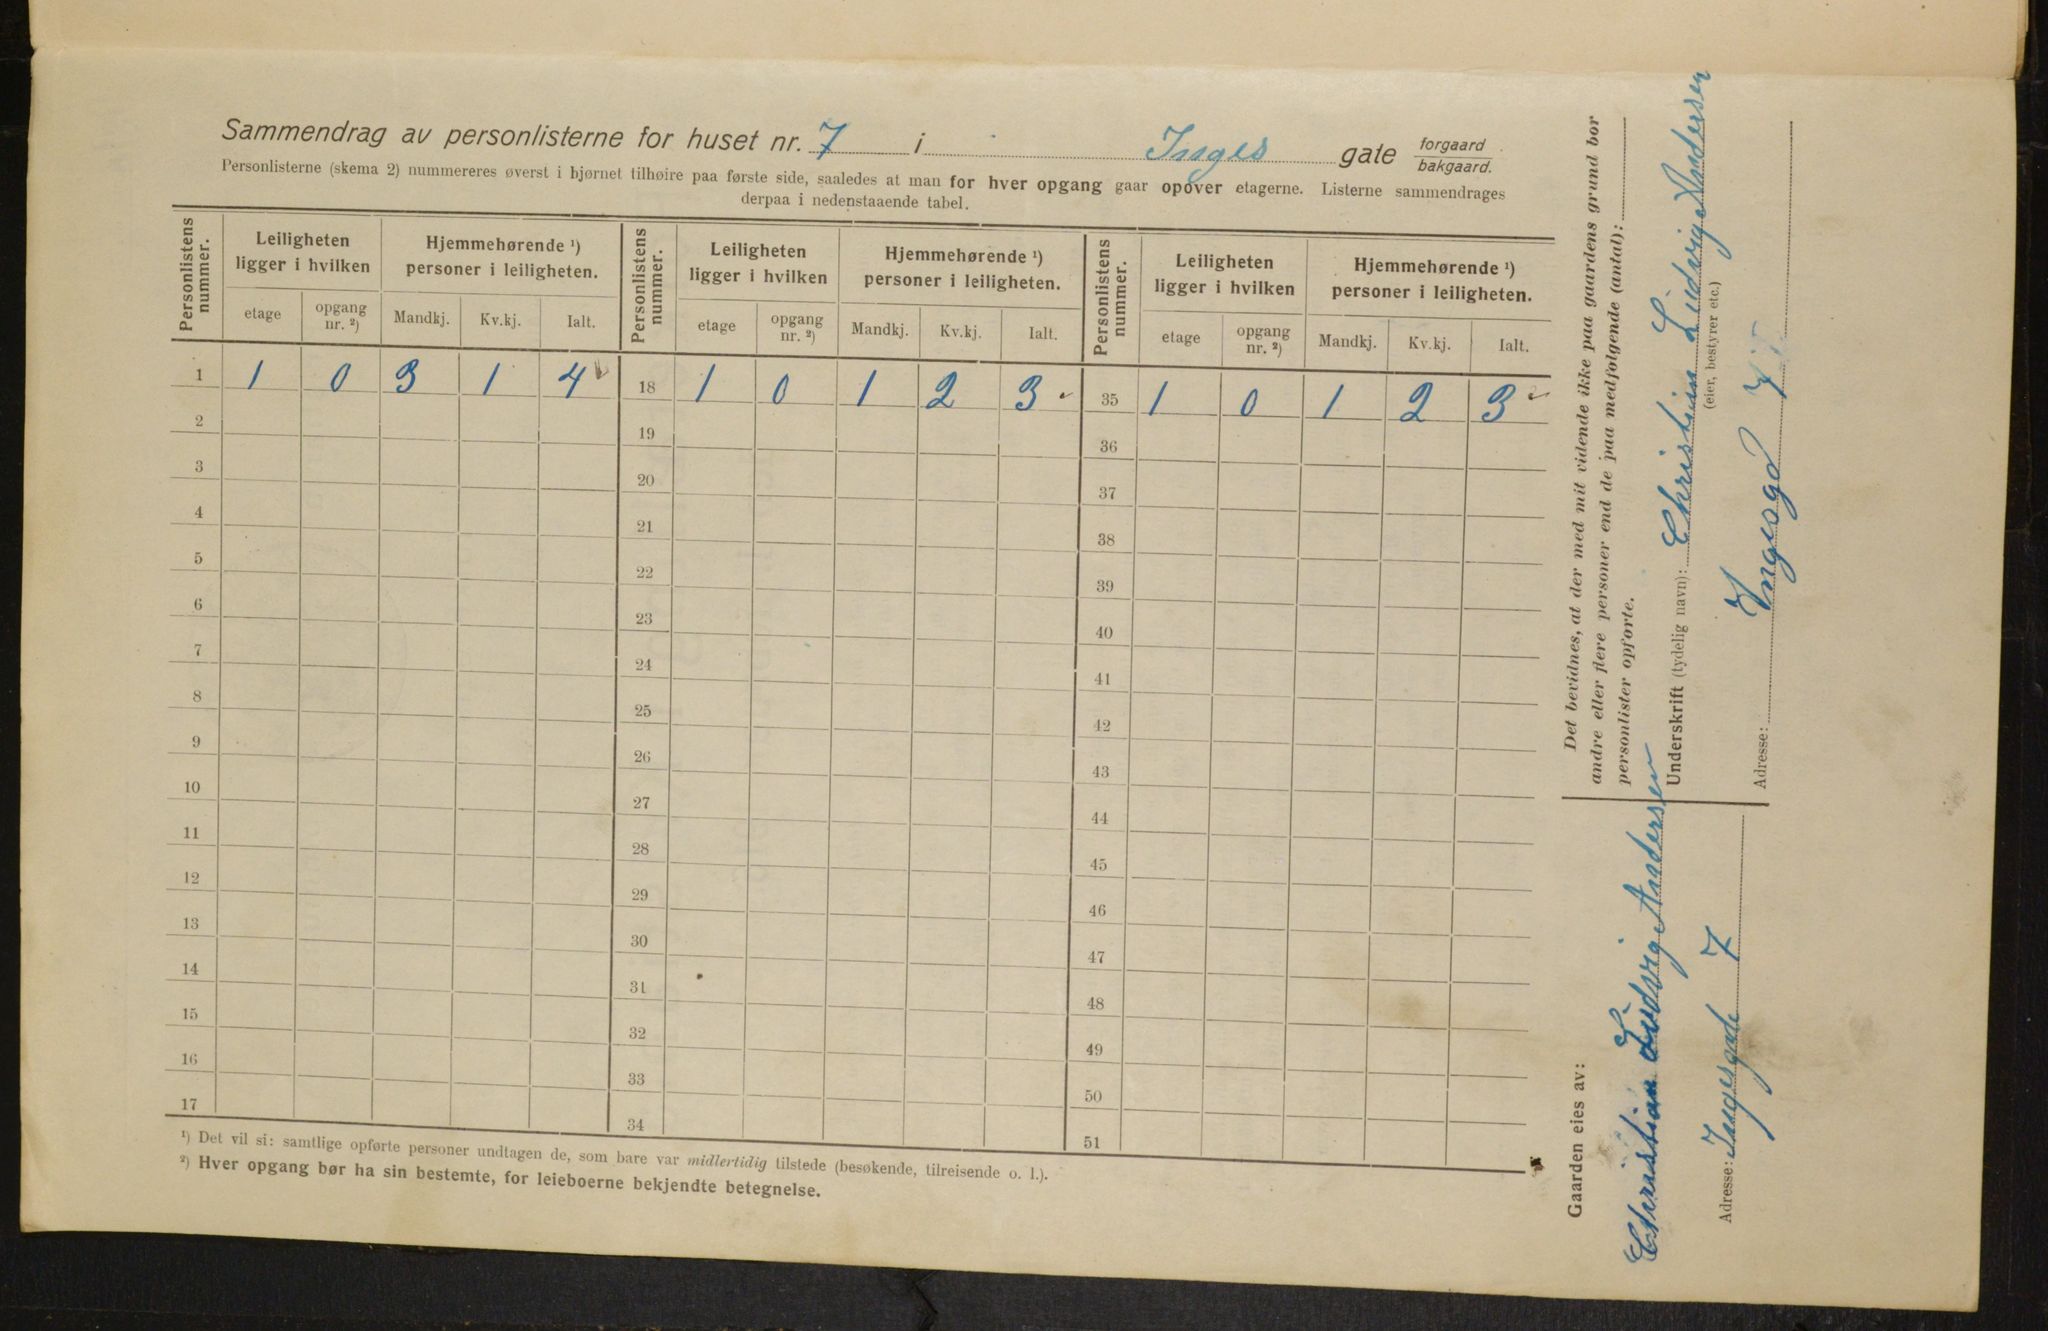 Sammendrag av personlisterne for huset nr. 7 i Inges gate forgaard / bakgaard.
Personlisterne (skema 2) nummereres øverst i hjørnet tilhøire paa første side, saaledes at man for hver opgang gaar opover etagerne. Listerne sammendrages
derpaa i nedenstaaende tabel.
Personlistens nummer. Leiligheten ligger i hvilken Hjemmehørende ¹) personer i leiligheten. Personlistens nummer. Leiligheten ligger i hvilken Hjemmehørende ¹) personer i leiligheten. Personlistens nummer. Leiligheten ligger i hvilken Hjemmehørende ¹) personer i leiligheten.
etage opgang nr. ²) Mandkj. Kv.kj. Ialt. etage opgang nr. ²) Mandkj. Kv.kj. Ialt. etage opgang nr. ²) Mandkj. Kv.kj. Ialt.
1 1 0 3 1 4 18 1 0 1 2 3 35 1 0 1 2 3
2 19 36
3 20 37
4 21 38
5 22 39
6 23 40
7 24 41
8 25 42
9 26 43
10 27 44
11 28 45
12 29 46
13 30 47
14 31 48
15 32 49
16 33 50
17 34 51
¹) Det vil si: samtlige opførte personer undtagen de, som bare var midlertidig tilstede (besøkende, tilreisende o. l.).
²) Hver opgang bør ha sin bestemte, for leieboerne bekjendte betegnelse.
Det bevidnes, at der med mit vidende ikke paa gaardens grund bor
andre eller flere personer end de paa medfølgende (antal):
personlister opførte.
Underskrift (tydelig navn): Christian Ludvig Andersen
(eier, bestyrer etc.)
Adresse: Ingesgd 7
Gaarden eies av:
Christian Ludvig Andersen
Adresse: Ingesgade 7